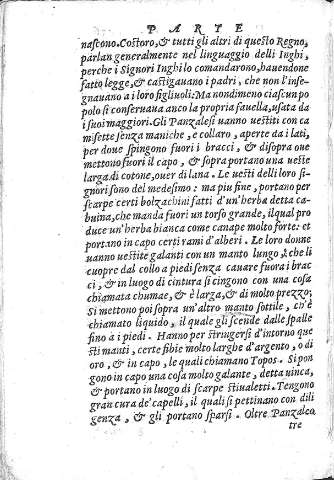 PARTE
nascono. Costoro, & tutti gli altri di questo Regno,
parlan generalmente nel linguaggio delli Inghi,
perche i Signori Inghi lo comandarono, hauendone
fatto legge, & castigauano i padri, che non l'inse-
gnauano a i loro figliuoli. Ma nondimeno ciascun po
polo si conseruaua anco la propria fauella, usata da
i suoi maggiori. Gli Panzalesi uanno uestiti con ca
misette senza maniche, e collaro, aperte da i lati,
per doue spingono fuori i bracci, & disopra oue
mettono fuori il capo, & sopra portano una ueste
larga di cotone, ouer di lana. Le uesti delli loro si-
gnori sono del medesimo: ma piu fine, portano per
scarpe certi bolzachini fatti d'un'herba detta ca-
buina, che manda fuori un torso grande, il qual pro
duce un'herba bianca come canape molto forte: et
portano in capo certi rami d'alberi. Le loro donne
uanno uestite galanti con un manto lungo, che li
cuopre dal collo a piedi senza cauare fuora i brac
ci, & in luogo di cintura si cingono con una cosa
chiamata chumae, & è larga, & di molto prezzo;
Si mettono poi sopra un'altro manto sottile, ch'è
chiamato liquido, il quale gli scende dalle spalle
fino a i piedi. Hanno per stringersi d'intorno que
sti manti, certe fibie molto larghe d'argento, o di
oro, & in capo, le quali chiamano Topos. Si pon
gono in capo una cosa molto galante, detta uinca,
& portano in luogo di scarpe stiualetti. Tengono
gran cura de' capelli, il quali si pettinano con dili
genza, & gli portano sparsi. Oltre Panzaleo
tre